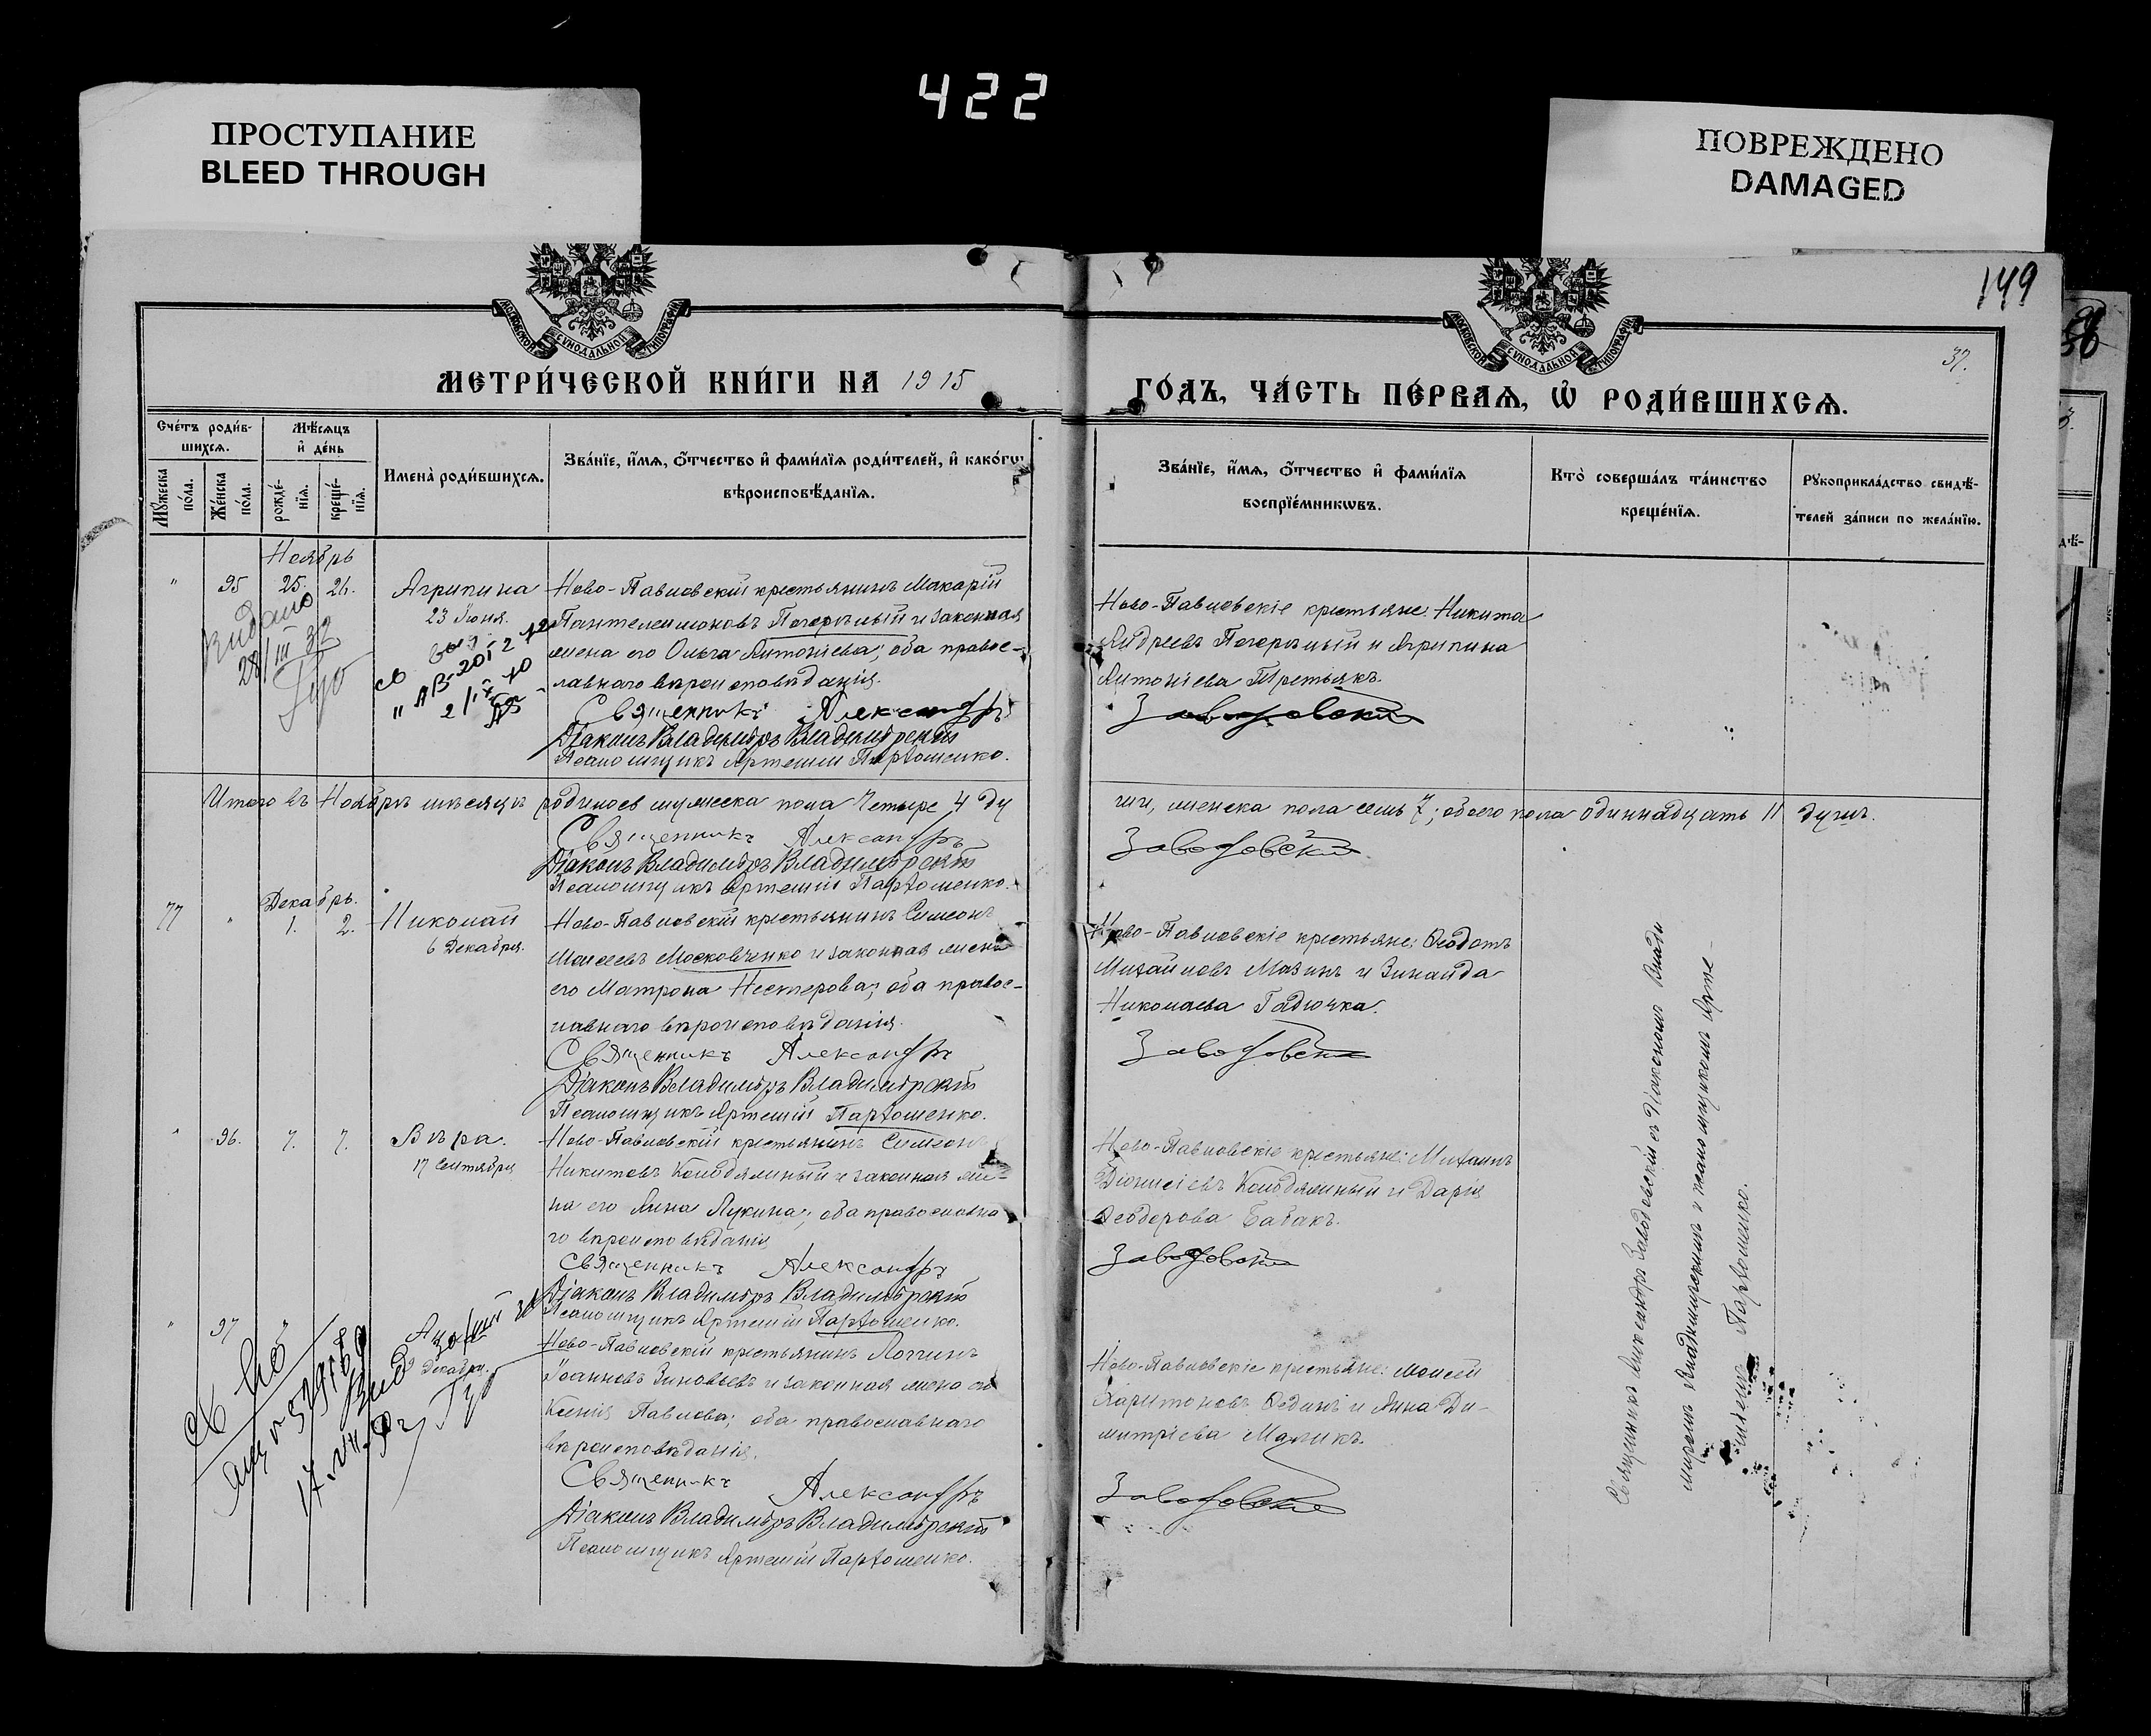 422
ПРОСТУПАНИЕ
BLEED THROUGH
ПОВРЕЖДЕНО
DAMAGED
149
37.
МОСКОВСКОЙ СѴНОДАЛЬНОЙ ТИПОГРАФІИ
МОСКОВСКОЙ СѴНОДАЛЬНОЙ ТИПОГРАФІИ
МЕТРИ́ЧЕСКОЙ КНИ́ГИ НА 1915
ГО́ДЪ, ЧА́СТЬ ПЕ́РВАѦ, Ѡ҆ РОДИ́ВШИХСѦ.
Сче́тъ роди́в-
шихсѧ.
Мѣ́сѧцъ
и҆ де́нь
Мꙋ́жеска по́ла.
Же́нска по́ла.
рожде́-нїѧ.
креще́-нїѧ.
Имена̀ роди́вшихсѧ.
Зва́нїе, и҆́мѧ, ѻ҆́тчество и҆ фами́лїѧ роди́телей, и҆ како́гѡ
вѣроисповѣ́данїѧ.
Зва́нїе, и҆́мѧ, ѻ҆́тчество и҆ фами́лїѧ
воспрїе́мникѡвъ.
Кто̀ соверша́лъ та́инство
креще́нїѧ.
Рꙋкоприкла́дство свидѣ́-
телей за́писи по жела́нїю.
Ноябрь
" 95 25. 26. Агрипина
23 Іюня.
Ново-Павловскій крестьянинъ Макарій
Пантелеимоновъ Погорѣлый и законная
жена его Ольга Антоніева; оба правос-
лавнаго вѣроисповѣданія.
Священникъ Александръ
Діаконъ Владиміръ Владимірскій
Псаломщикъ Артемій Парѳоменко.
Ново-Павловскіе крестьяне: Никита
Андреевъ Погорѣлый и Агрипина
Антоніева Третьякъ.
Заводовскій
Видано
28/III 32
Итого въ Ноябрѣ мѣсяцѣ родилось мужеска пола Четыре 4 ду
ши, женска пола семь 7; обоего пола одиннадцать 11 душъ.
Священникъ Александръ
Заводовскій
Діаконъ Владиміръ Владимірскій
Псаломщикъ Артемій Парѳоменко.
Декабрь.
77 " 1. 2. Николай
6 Декабря.
Ново-Павловскій крестьянинъ Симеонъ
Моисеевъ Московченко и законная жена
его Матрона Нестерова; оба правос-
лавнаго вѣроисповѣданія.
Священникъ Александръ
Діаконъ Владиміръ Владимірскій
Псаломщикъ Артемій Парѳоменко.
Ново-Павловскіе крестьяне: Ѳеодотъ
Михайловъ Мазинъ и Зинаида
Николаева Гадючка.
Заводовскій
" 96. 7. 7. Вѣра.
17 Сентября
Ново-Павловскій крестьянинъ Симеонъ
Никитовъ Колодяжный и законная же-
на его Анна Лукина; оба православна
го вѣроисповѣданія
Священникъ Александръ
Діаконъ Владиміръ Владимірскій
Псаломщикъ Артемій Парѳоменко.
Ново-Павловскіе крестьяне: Михаилъ
Діонисіевъ Колодяжный и Дарія
Ѳеодорова Бабакъ.
Заводовскій
" 97
9 Декабря.
Ново-Павловскій крестьянинъ Логгинъ
Іоанновъ Зиновьевъ и законная жена его
Ксенія Павлова; оба православнаго
вѣроисповѣданія.
Священникъ Александръ
Діаконъ Владиміръ Владимірскій
Псаломщикъ Артемій Парѳоменко.
Ново-Павловскіе крестьяне: Моисей
Харитоновъ Ѳединъ и Анна Ди-
митріева Маликъ.
Заводовскій
Священникъ Александръ Заводовскій съ Діакономъ Влади
міромъ Владимірскимъ и псаломщикомъ Арте-
міемъ Парѳоменко.